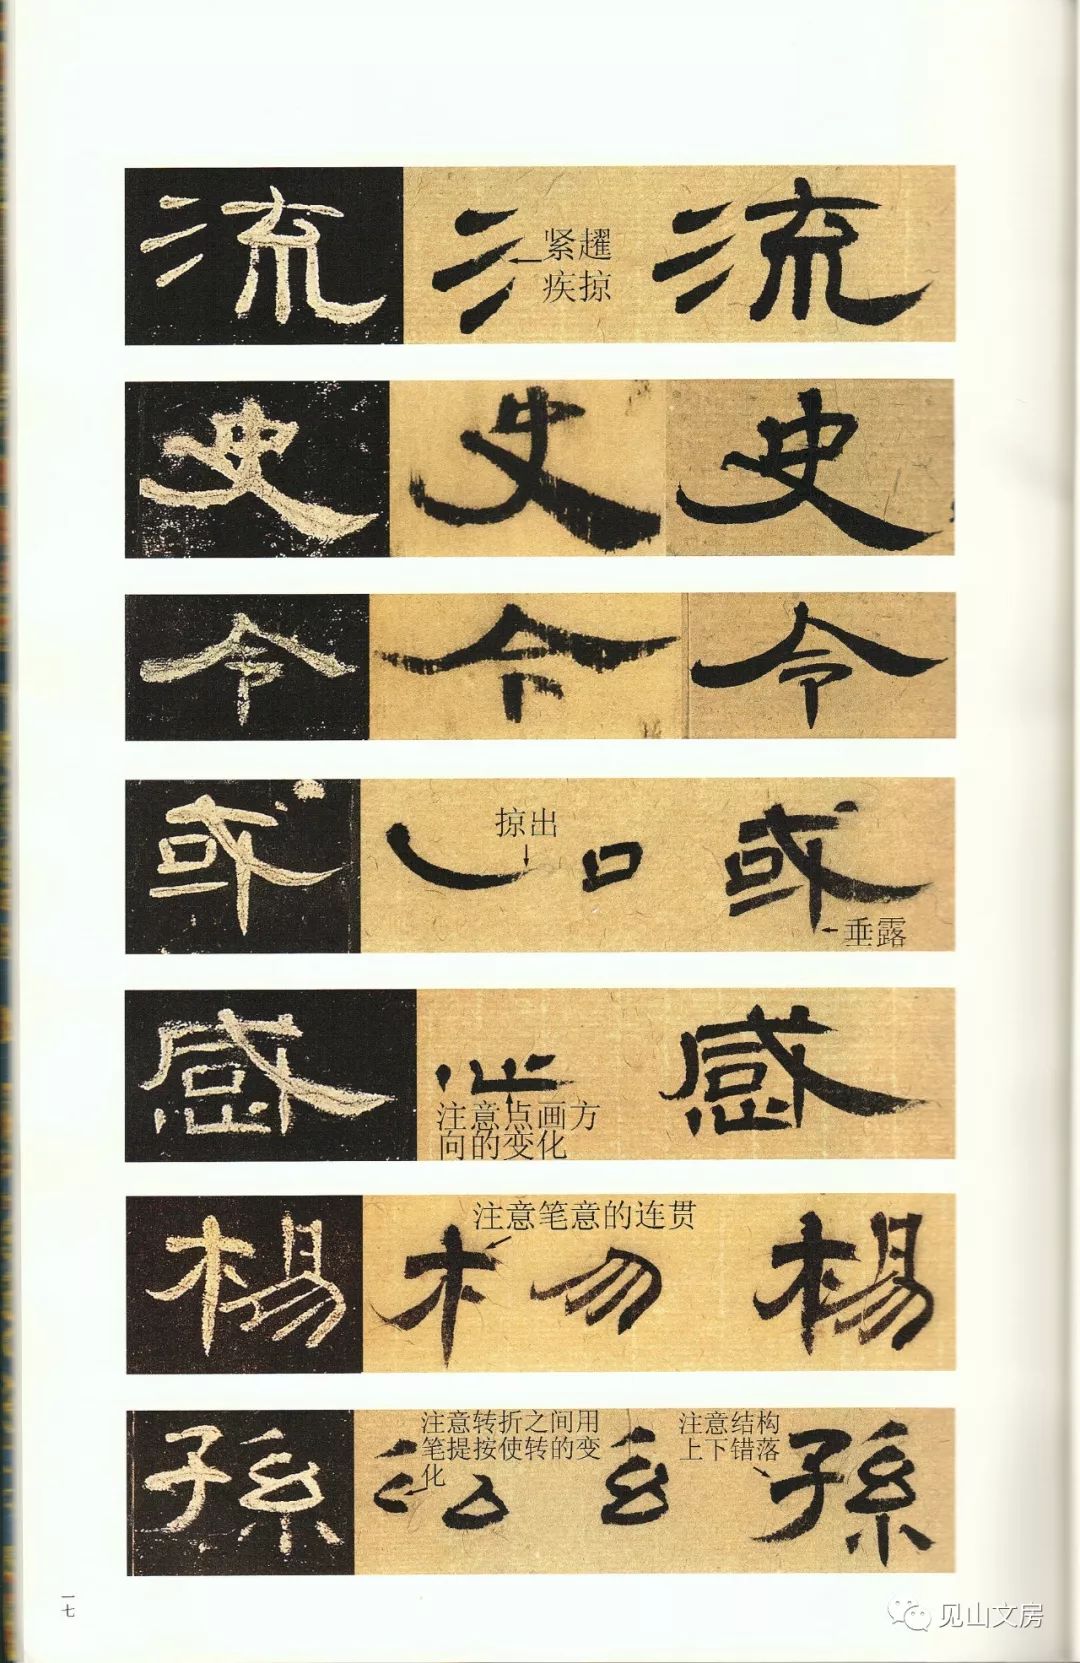 流 流
紧趯
疾掠
史 史
令 令
或 或
掠出
口
垂露
感 感
注意点画方
向的变化
楊 木 勿 楊
注意笔意的连贯
孫 孫
注意转折之间用
笔提按使转的变
化
注意结构
上下错落
一七
见山文房